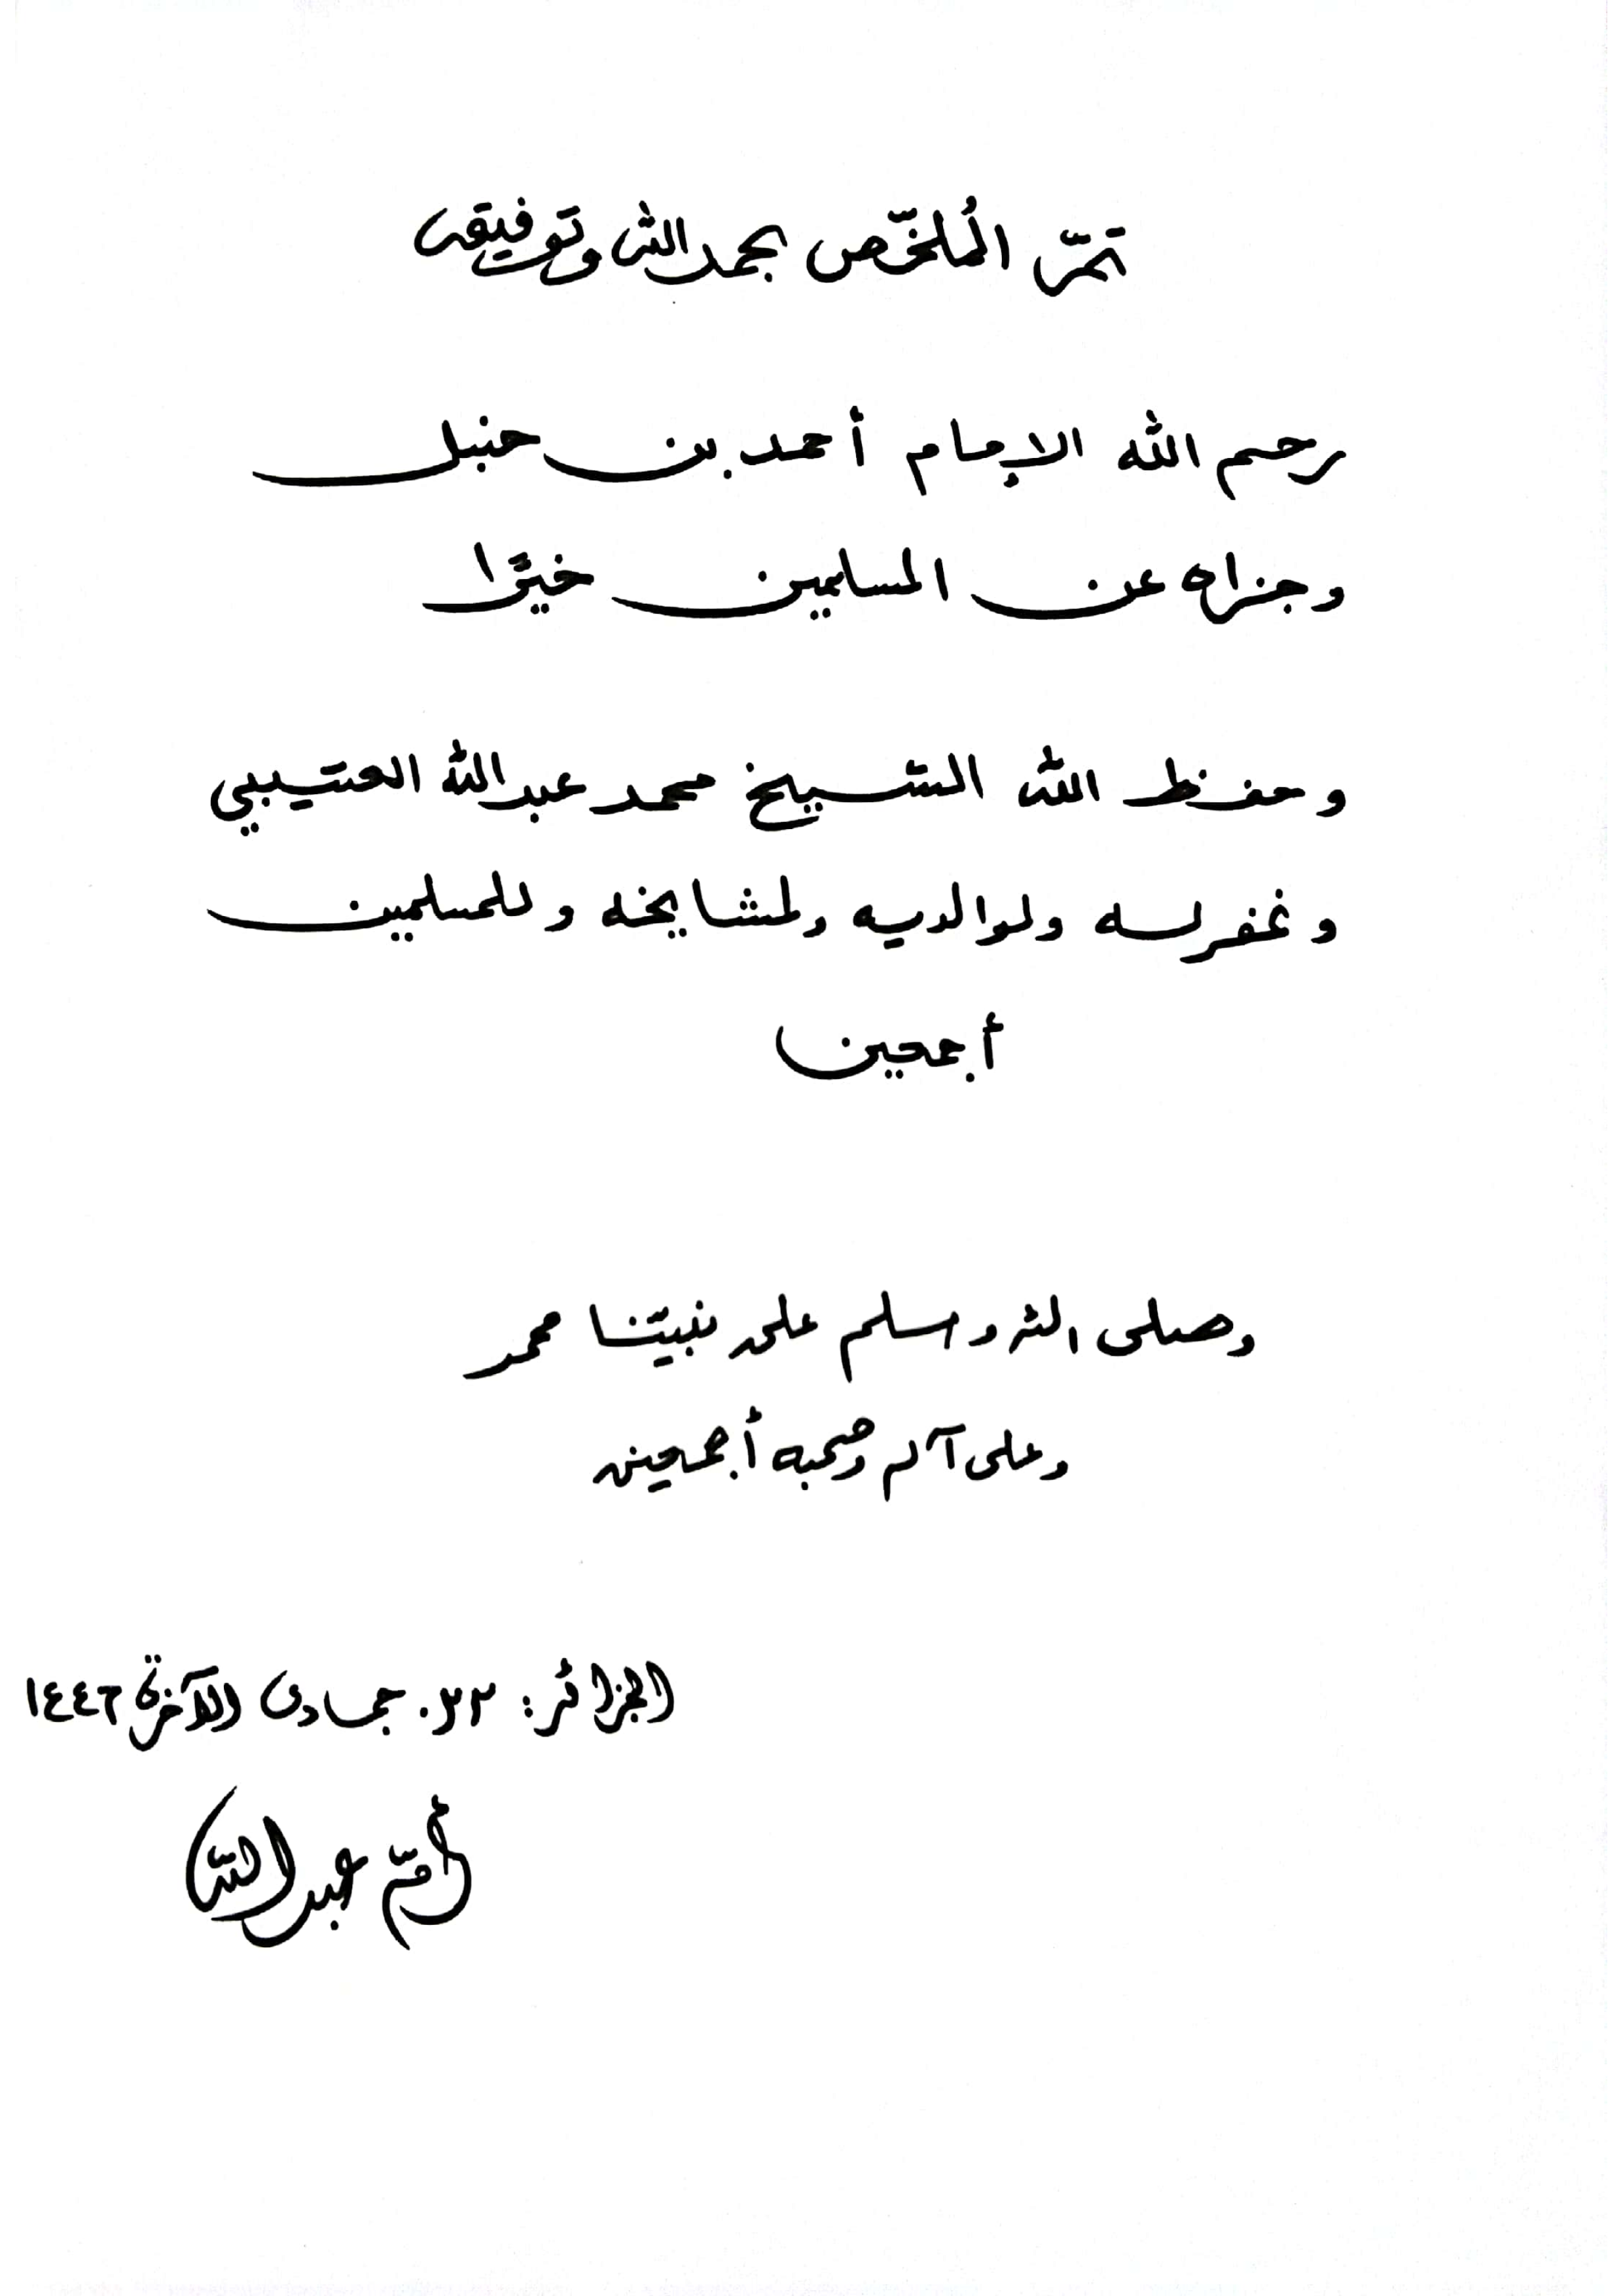 تمّ المُلخّص بحمد الله وتوفيقه
رحم الله الإمام أحمد بن حنبل
وجزاه عن المسلمين خيرًا
وحفظ الله الشيخ محمد عبدالله العتيبي
وغفر له ولوالديه ولمشايخه وللمسلمين
أجمعين
وصلى الله وسلم على نبيّنا محمد
وعلى آله وصحبه أجمعين
الجزائر: ٢٣. جمادى الآخرة ١٤٤٢
أمّ عبد اللّه